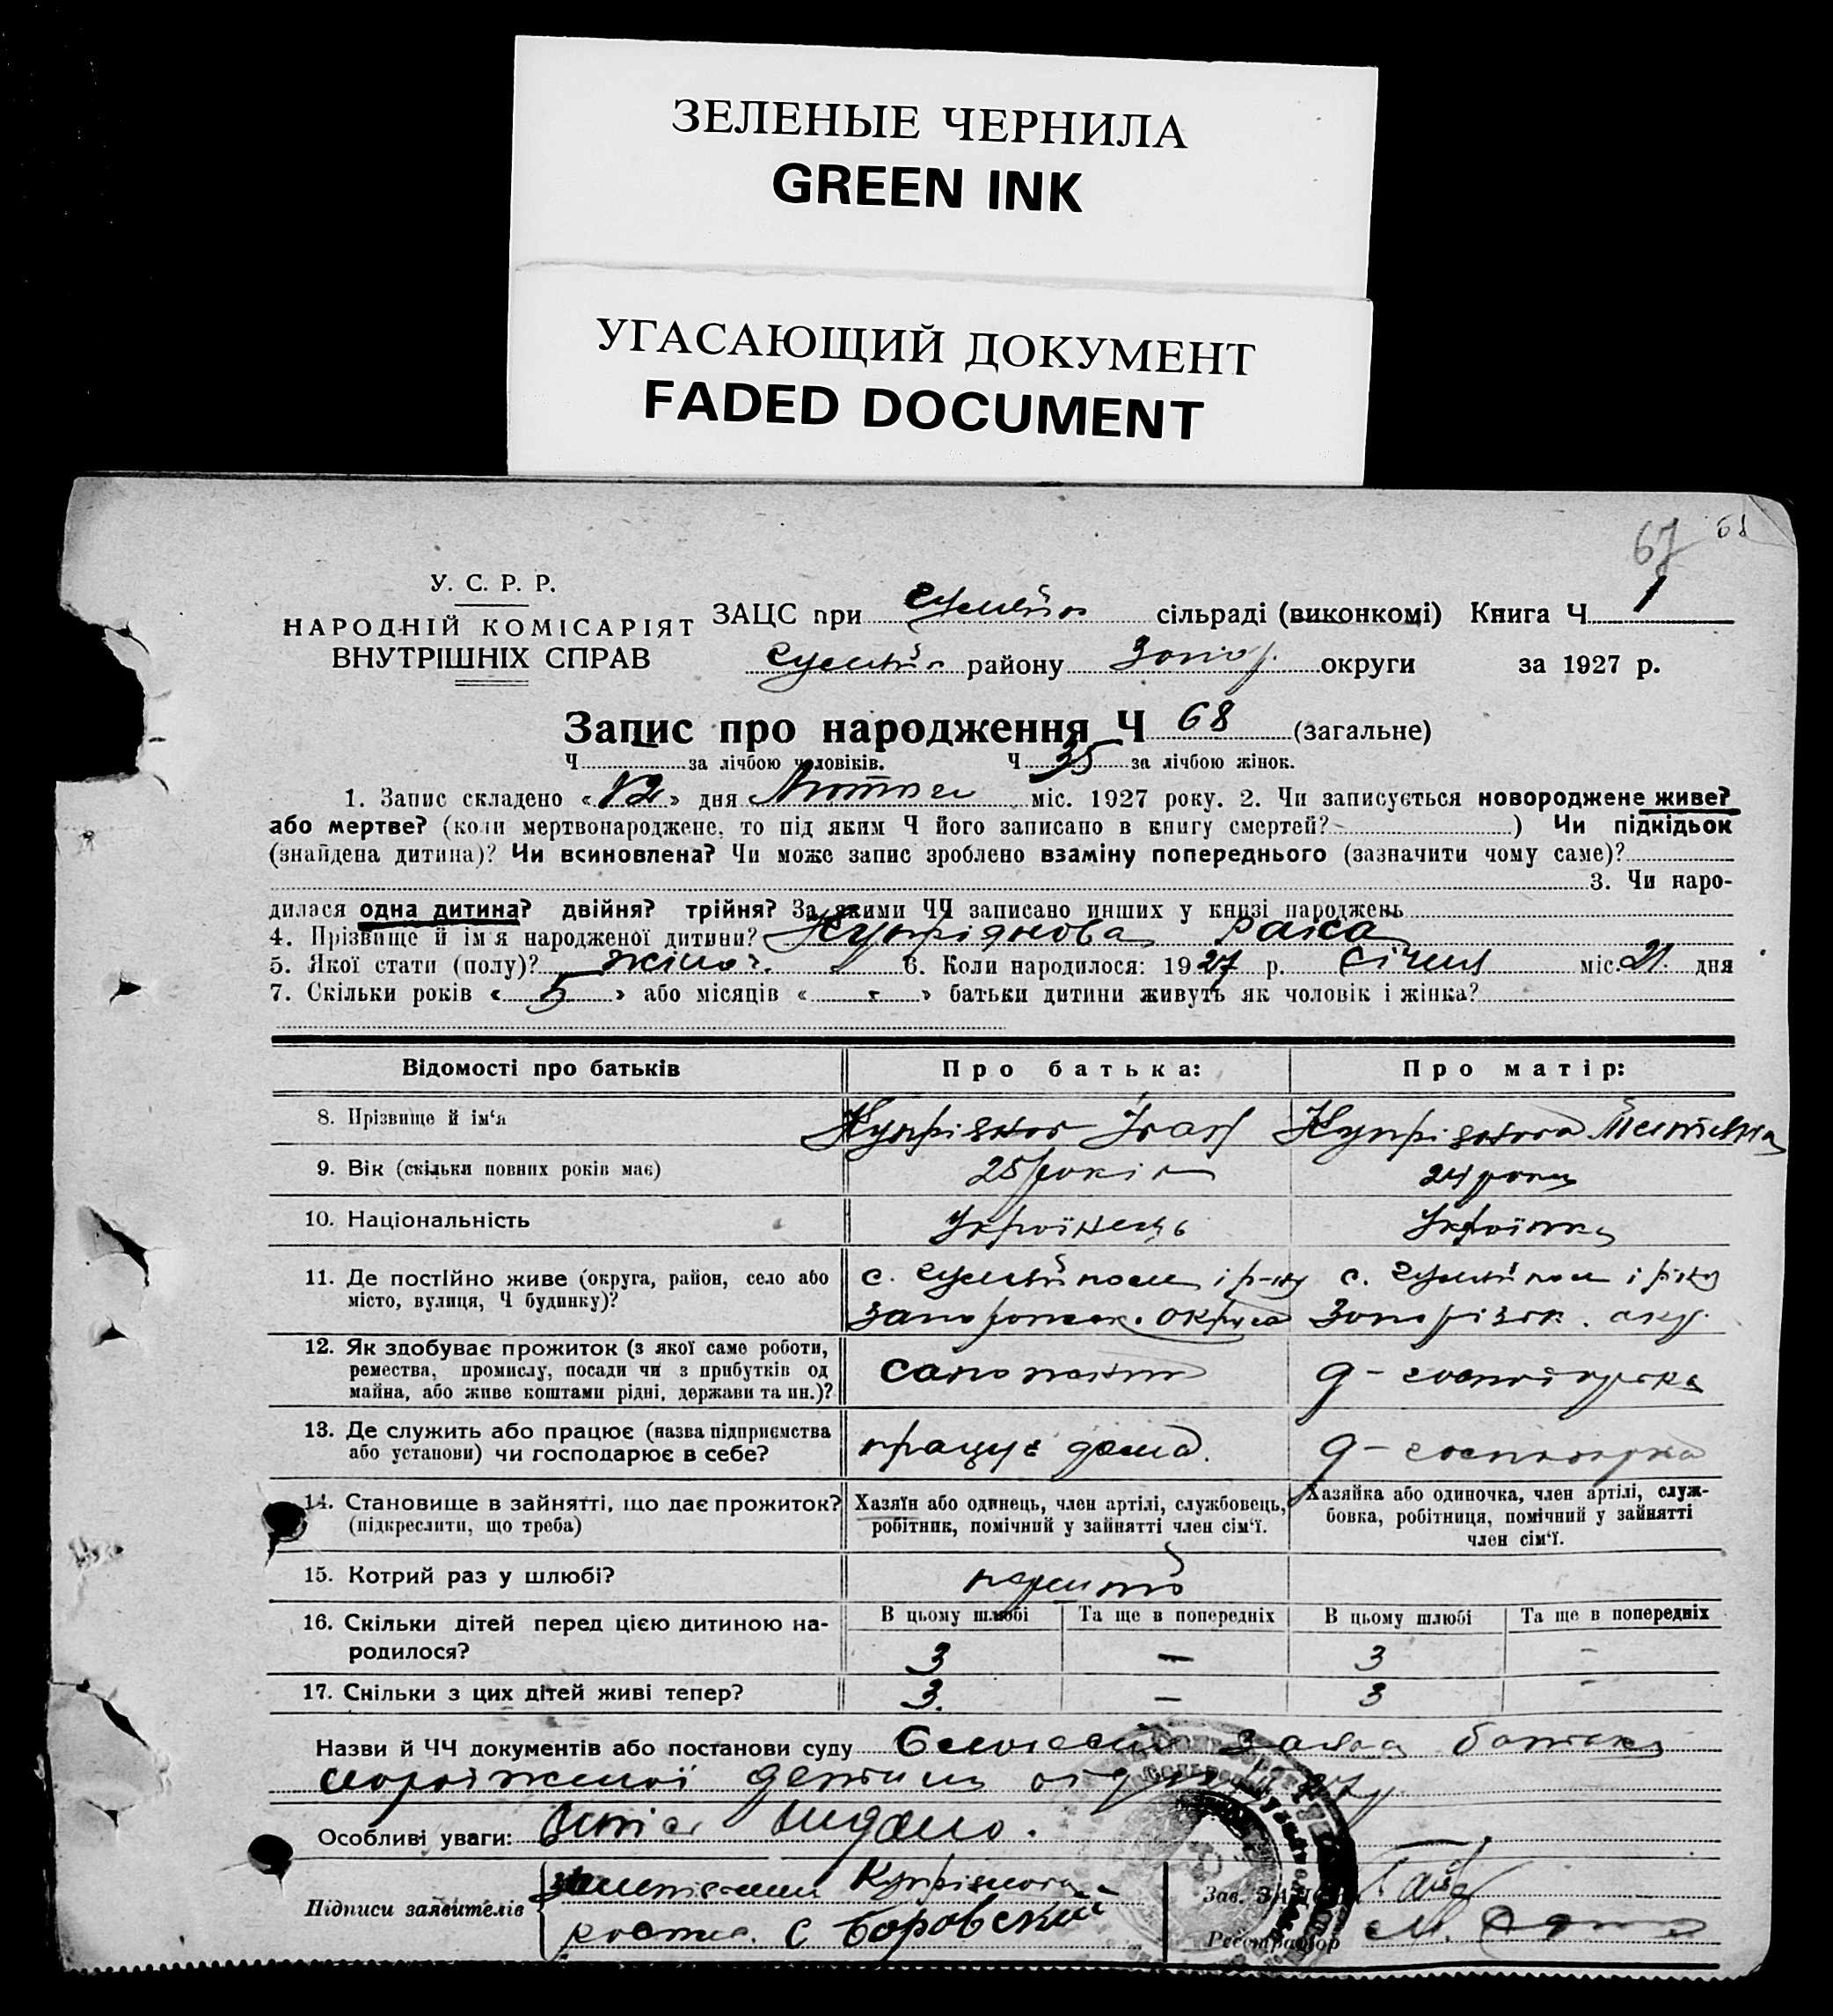 ЗЕЛЕНЫЕ ЧЕРНИЛА
GREEN INK
УГАСАЮЩИЙ ДОКУМЕНТ
FADED DOCUMENT
67 68
У. С. Р. Р.
НАРОДНІЙ КОМІСАРІЯТ
ВНУТРІШНІХ СПРАВ
ЗАЦС при сільраді (виконкомі) Книга Ч 1
району Запор. округи за 1927 р.
Запис про народження Ч 68 (загальне)
Ч за лічбою чоловіків. Ч 35 за лічбою жінок.
1. Запис складено «12» дня Лютого міс. 1927 року. 2. Чи записується новороджене живе?
або мертве? (коли мертвонароджене, то під яким Ч його записано в книгу смертей? ) Чи підкідьок
(знайдена дитина)? Чи всиновлена? Чи може запис зроблено взаміну попереднього (зазначити чому саме)?
3. Чи наро-
дилася одна дитина? двійня? трійня? За якими ЧЧ записано инших у книзі народжень
4. Прізвище й ім'я народженої дитини? Купріянова Раїса
5. Якої стати (полу)? жіноч. 6. Коли народилося: 1927 р. січня міс. 21 дня
7. Скільки років « 5 » або місяців « - » батьки дитини живуть як чоловік і жінка?
Відомості про батьків Про батька: Про матір:
8. Прізвище й ім'я Купріянов Іван Купріянова
9. Вік (скільки повних років має) 25 років 24 роки
10. Національність Українець Українка
11. Де постійно живе (округа, район, село або
місто, вулиця, Ч будинку)?
с. і р-ну
Запорожск. округа
с. і р-ну
Запорізк. окр.
12. Як здобуває прожиток (з якої саме роботи,
ремества, промислу, посади чи з прибутків од
майна, або живе коштами рідні, держави та ин.)?
д-господарка
13. Де служить або працює (назва підприємства
або установи) чи господарює в себе?
працує дома.
д-господарка
14. Становище в зайнятті, що дає прожиток?
(підкреслити, що треба)
Хазяїн або одинець, член артілі, службовець,
робітник, помічний у зайнятті член сім'ї.
Хазяйка або одиночка, член артілі, служ-
бовка, робітниця, помічний у зайнятті
член сім'ї.
15. Котрий раз у шлюбі? перший
16. Скільки дітей перед цією дитиною на-
родилося?
В цьому шлюбі Та ще в попередніх В цьому шлюбі Та ще в попередніх
3 — 3 -
17. Скільки з цих дітей живі тепер? 3. — 3 -
Назви й ЧЧ документів або постанови суду заява батька
дитини
Особливі уваги: Витяг видано.
Підписи заявителів Купріянова
С Боровский
Зав. ЗАЦСОМ
Реєстратор